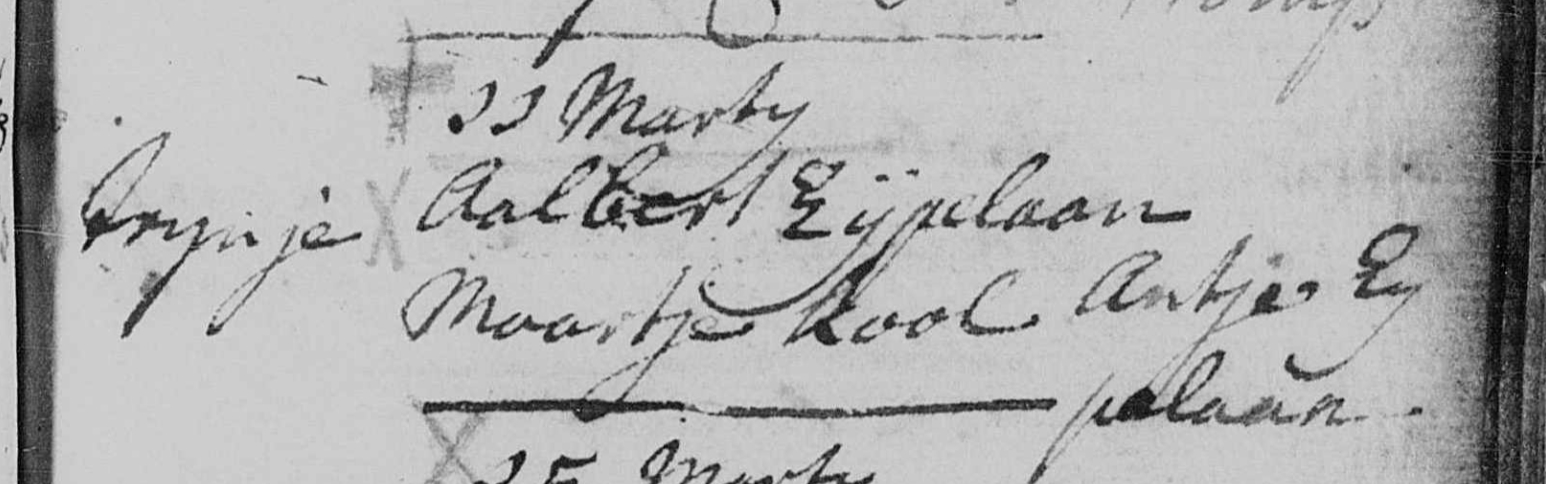 11 Marty
Trynje Aalbert Eijpelaan
Maartje Kool Antje Ey
pelaan
15 Marty